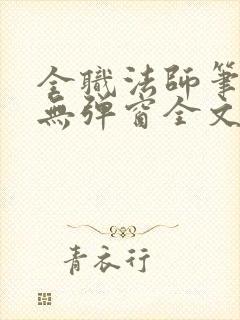 全職法師筆
無彈窗全文
青衣行